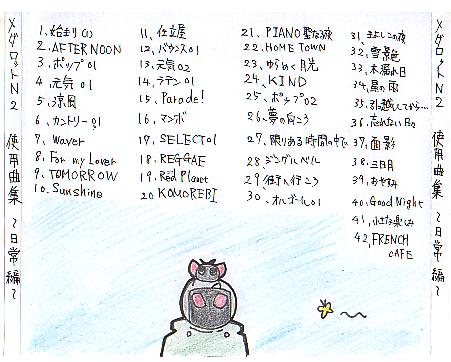 メダロットN2 使用曲集 〜日常編〜
1. 始まり01
2. AFTERNOON
3. ポップ01
4. 元気01
5. 涼風
6. カントリー01
7. Waver
8. For my Lover
9. TOMORROW
10. Sunshine
11. 仕立屋
12. バウンス01
13. 元気02
14. ラテン01
15. Parade!
16. マンボ
17. SELECT01
18. REGGAE
19. Red Planet
20. KOMOREBI
21. PIANO聖なる夜
22. HOME TOWN
23. ゆらめく月光
24. KIND
25. ポップ02
26. 夢の向こう
27. 限りある時間の中で
28. ジングルベル
29. 街へ行こう
30. オルゴール01
31. きよしこの夜
32. 雪景色
33. 木漏れ日
34. 星の雨
35. 引越してから…
36. 忘れない日々
37. 面影
38. 三日月
39. おやすみ
40. Good Night
41. 小さな楽しみ
42. FRENCH
CAFE
メダロットN2 使用曲集 〜日常編〜